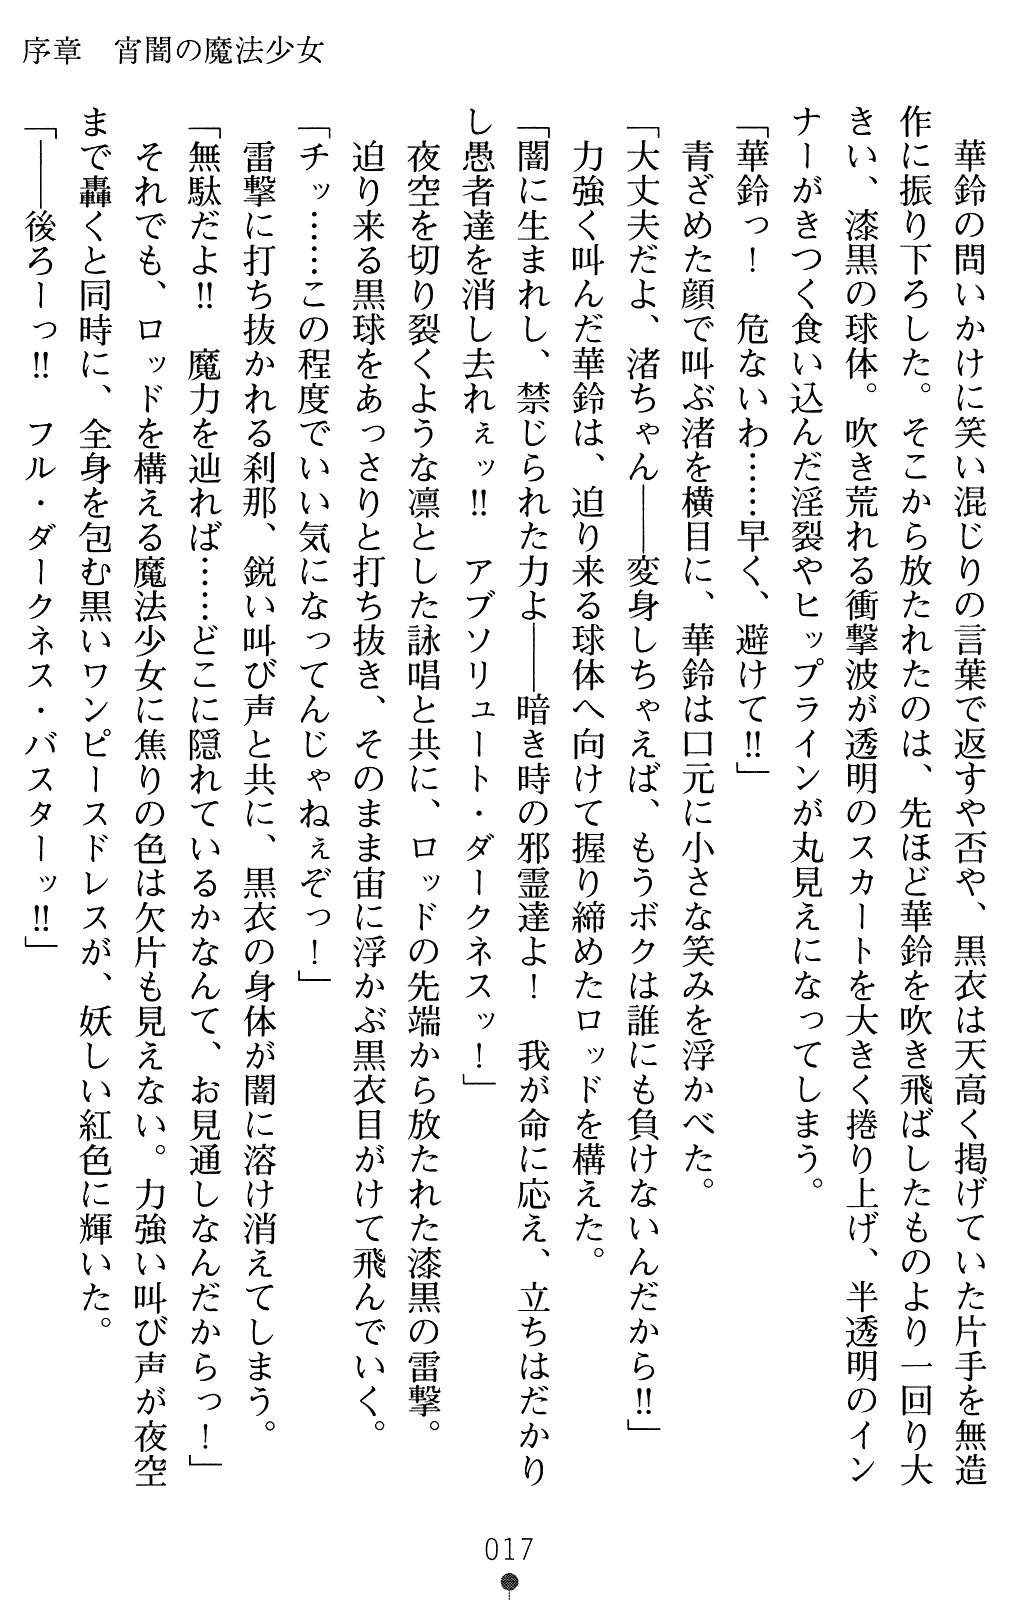 序章　宵闇の魔法少女
華鈴の問いかけに笑い混じりの言葉で返すや否や、黒衣は天高く掲げていた片手を無造
作に振り下ろした。そこから放たれたのは、先ほど華鈴を吹き飛ばしたものより一回り大
きい、漆黒の球体。吹き荒れる衝撃波が透明のスカートを大きく捲り上げ、半透明のイン
ナーがきつく食い込んだ淫裂やヒップラインが丸見えになってしまう。
「華鈴っ！　危ないわ……早く、避けて!!」
青ざめた顔で叫ぶ渚を横目に、華鈴は口元に小さな笑みを浮かべた。
「大丈夫だよ、渚ちゃん――変身しちゃえば、もうボクは誰にも負けないんだから!!」
力強く叫んだ華鈴は、迫り来る球体へ向けて握り締めたロッドを構えた。
「闇に生まれし、禁じられた力よ――暗き時の邪霊達よ！　我が命に応え、立ちはだかり
し愚者達を消し去れぇッ!!　アブソリュート・ダークネスッ！」
夜空を切り裂くような凛とした詠唱と共に、ロッドの先端から放たれた漆黒の雷撃。
迫り来る黒球をあっさりと打ち抜き、そのまま宙に浮かぶ黒衣目がけて飛んでいく。
「チッ……この程度でいい気になってんじゃねぇぞっ！」
雷撃に打ち抜かれる刹那、鋭い叫び声と共に、黒衣の身体が闇に溶け消えてしまう。
「無駄だよ!!　魔力を辿れば……どこに隠れているかなんて、お見通しなんだからっ！」
それでも、ロッドを構える魔法少女に焦りの色は欠片も見えない。力強い叫び声が夜空
まで轟くと同時に、全身を包む黒いワンピースドレスが、妖しい紅色に輝いた。
「――後ろーっ!!　フル・ダークネス・バスターッ!!」
017